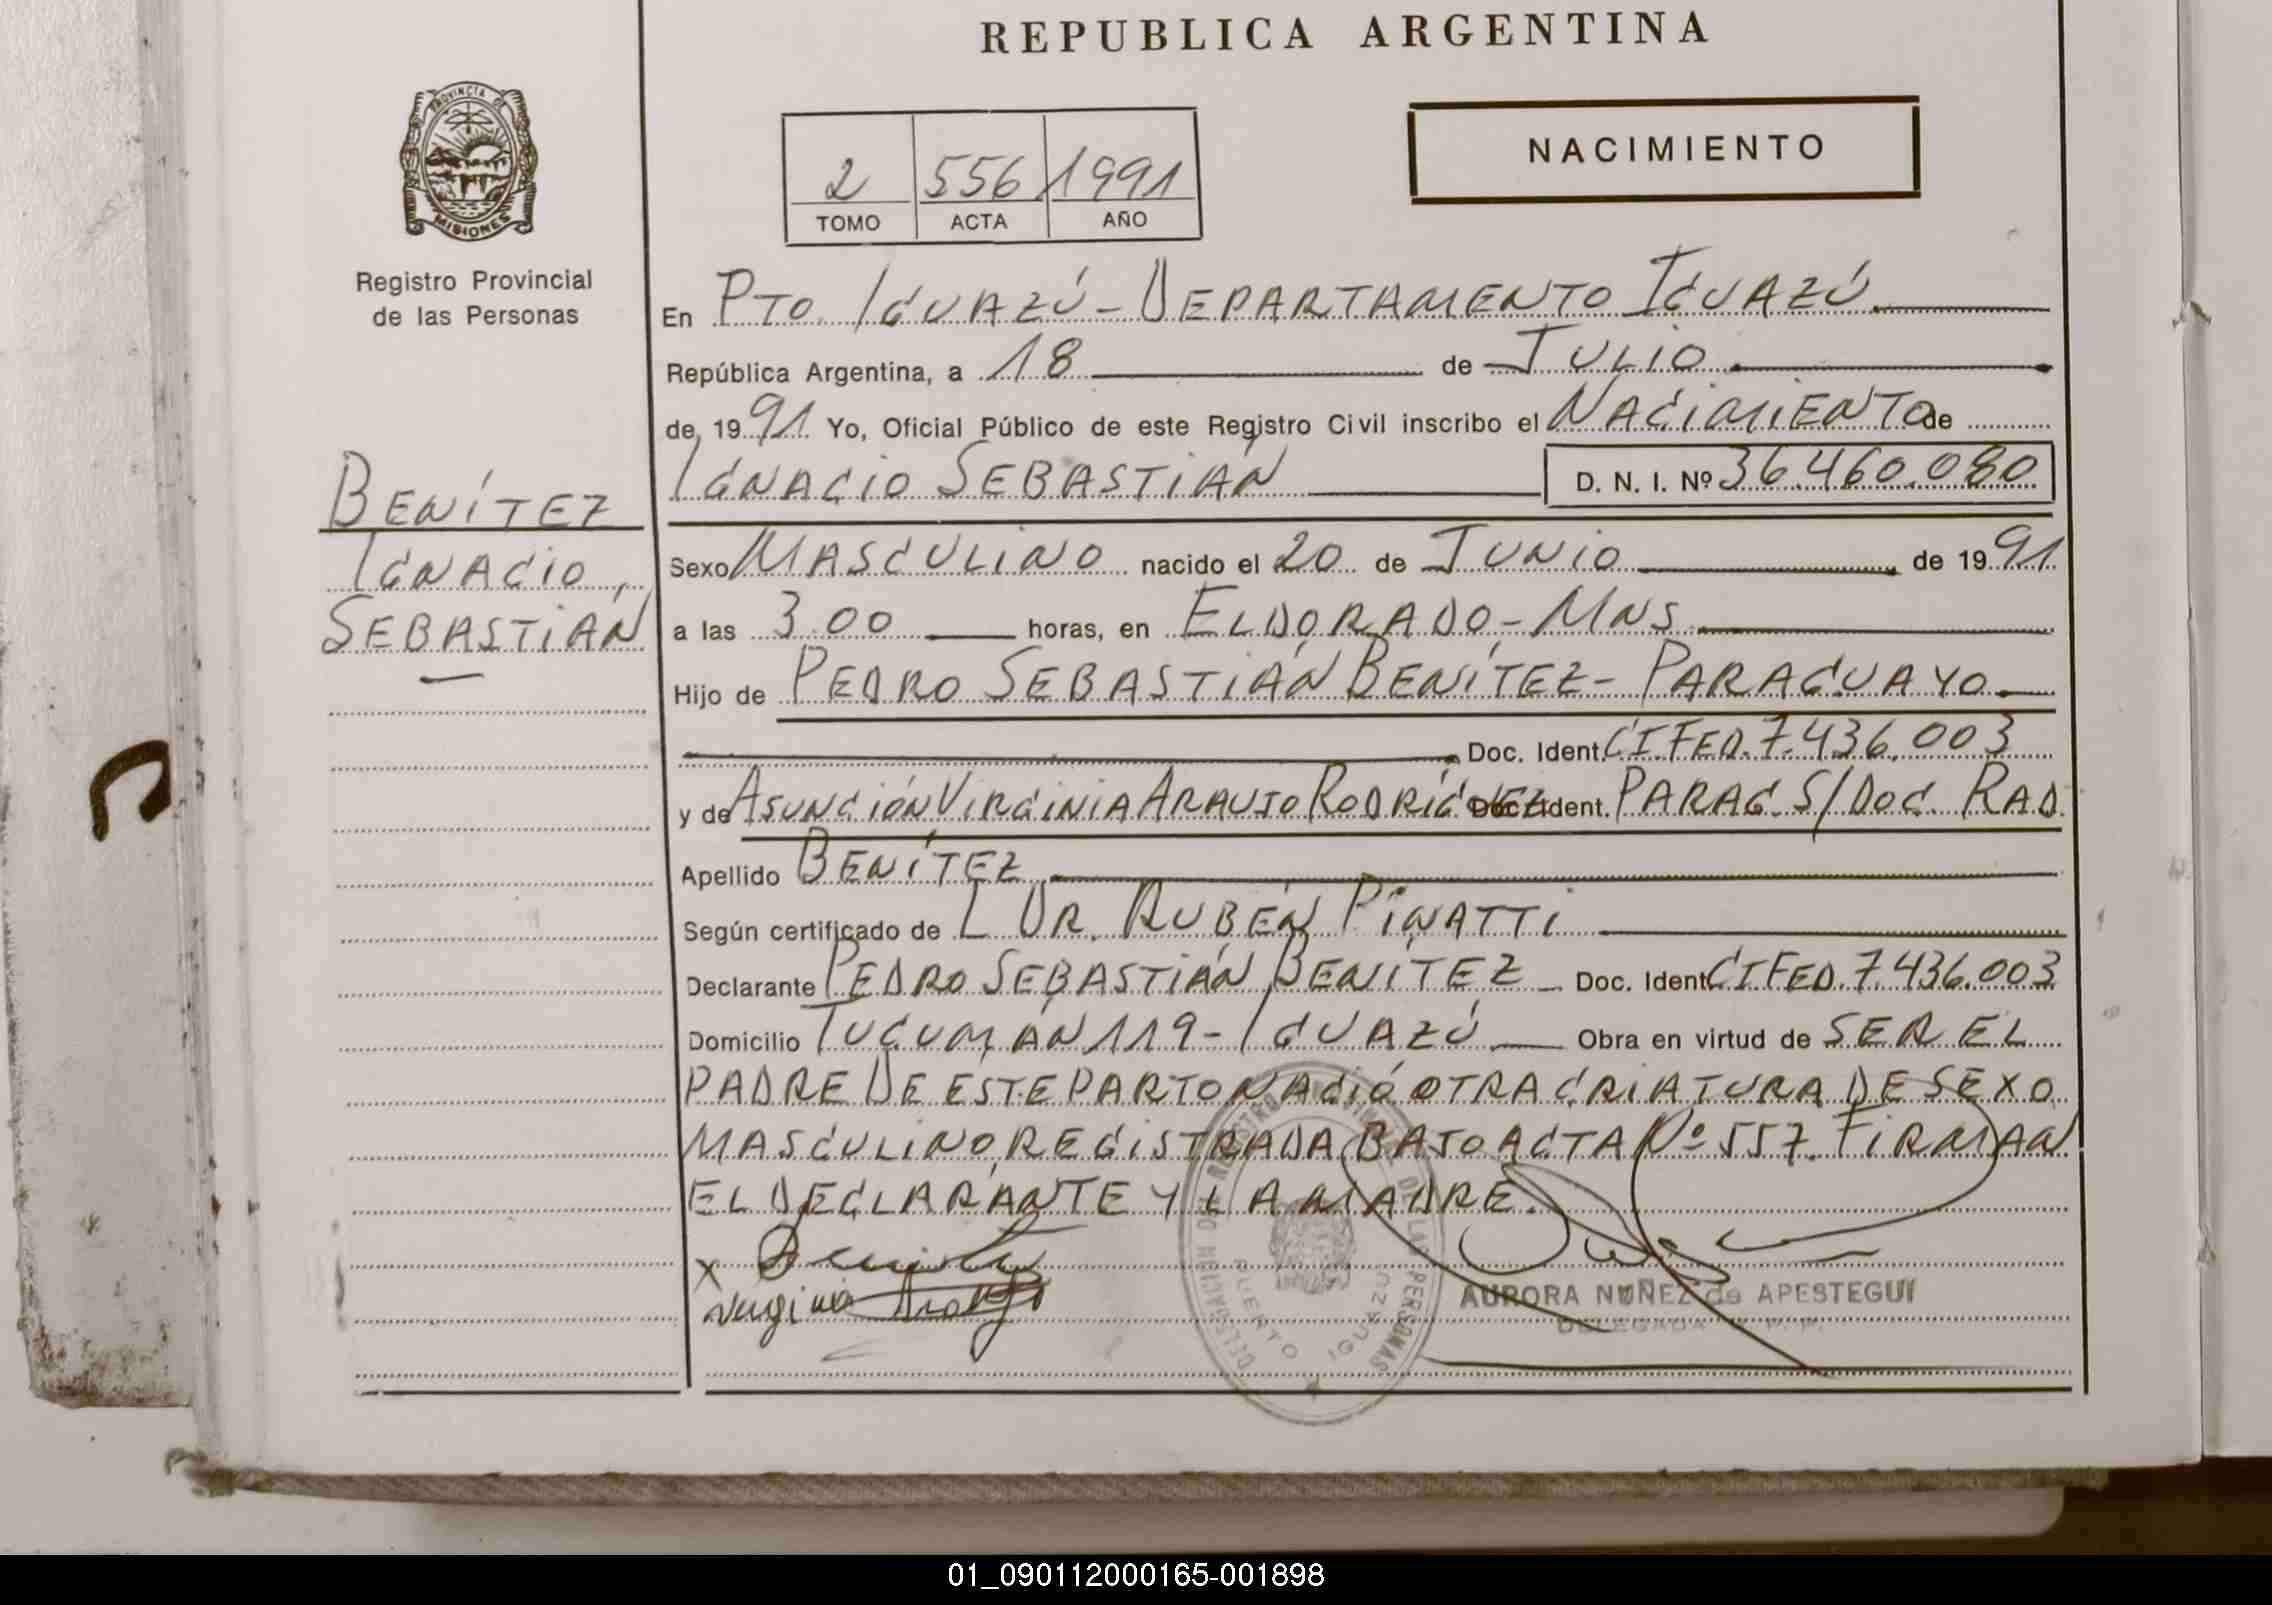 REPUBLICA ARGENTINA
PROVINCIA DE
MISIONES
Registro Provincial
de las Personas
2 556 1991
TOMO ACTA AÑO
NACIMIENTO
En PTO. IGUAZÚ - DEPARTAMENTO IGUAZÚ
República Argentina, a 18 de JULIO
de 1991 Yo, Oficial Público de este Registro Civil inscribo el NACIMIENTO de
IGNACIO SEBASTIÁN D. N. I. Nº 36.460.080
BENÍTEZ
IGNACIO
SEBASTIÁN
Sexo MASCULINO nacido el 20 de JUNIO de 1991
a las 3.00 horas, en ELDORADO - MNS
Hijo de PEDRO SEBASTIÁN BENÍTEZ - PARAGUAYO
Doc. Ident. CI FED. 7.436.003
y de ASUNCIÓN VIRGINIA ARAUJO RODRÍGUEZ Doc. Ident. PARAG. S/DOC. RAD.
Apellido BENÍTEZ
Según certificado de L DR. RUBÉN PINATTI
Declarante PEDRO SEBASTIÁN BENÍTEZ Doc. Ident CI FED. 7.436.003
Domicilio TUCUMÁN 119 - IGUAZÚ Obra en virtud de SER EL
PADRE DE ESTE PARTO NACIÓ OTRA CRIATURA DE SEXO
MASCULINO, REGISTRADA BAJO ACTA Nº 557. FIRMAN
EL DECLARANTE Y LA MADRE.
X
Virginia
AURORA NUÑEZ de APESTEGUI
DELEGADA
DELEGACION
DE LAS PERSONAS
PUERTO IGUAZU
01_090112000165-001898